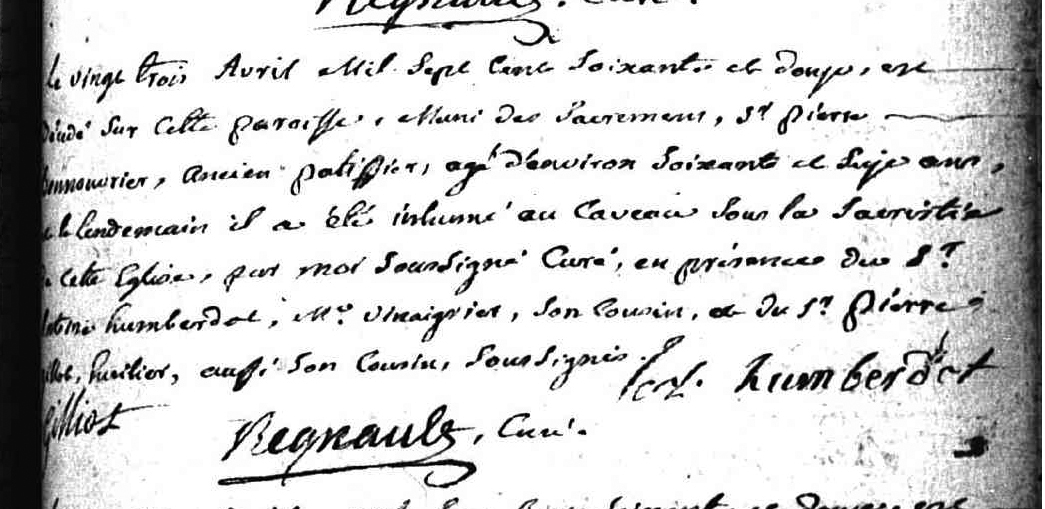 Regnault. Curé.
Le vingt trois Avril Mil Sept Cent Soixante et douze, est
décédé sur cette paroisse, Muni des Sacremens, Sr. pierre
ancien patissier, agé d'environ Soixante et Seize ans,
et le lendemain il a été inhumé au Caveau Sous la Sacristie
de cette Eglise, par moi Soussigné Curé, en présence du Sr.
humberdot, Me. vinaigrier, Son Cousin, et du Sr. pierre
huilier, aussi Son Cousin, Soussignés. humberdot
Gilliot
Regnault, Curé.
Soixante et douze, est